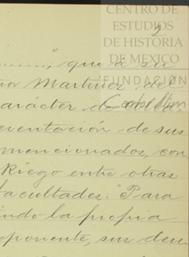 CENTRO DE
ESTUDIOS
DE HISTORIA
DE MEXICO
FUNDACIÓN
Carlos Slim
que a
Martinez de
carácter de
sentación de sus
mencionados, con
Riego entre otras
facultades: "Para
ndo la propia
ponente, sin